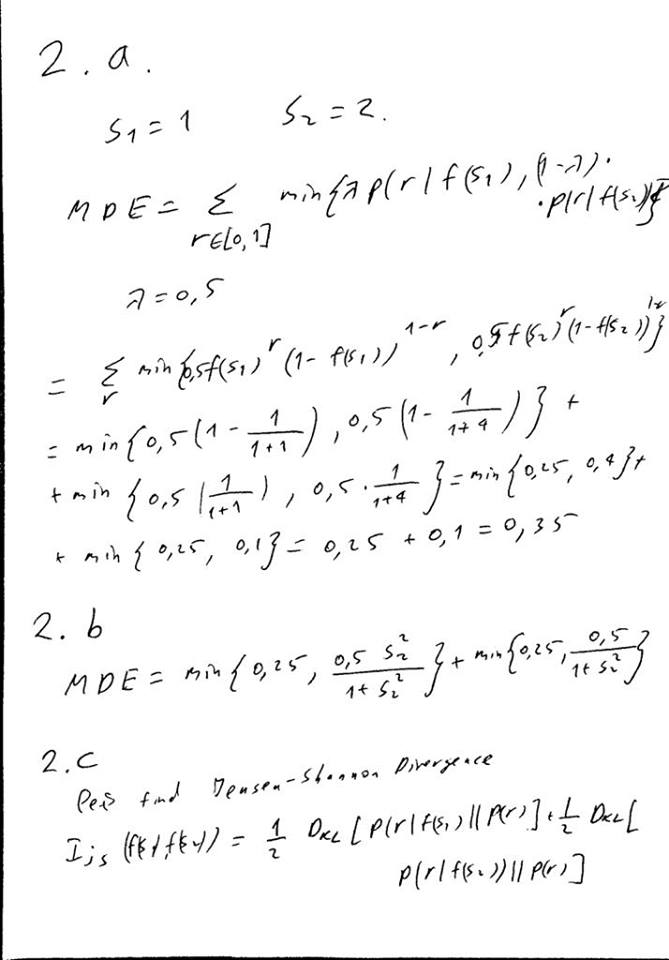 2.a.
S₁ = 1 S₂ = 2.
MDE = Σ min{λ p(r | f(s₁)), (1-λ)·
r∈[0,1] ·p(r | f(s₂))}
λ = 0,5
= Σ min{0,5f(s₁)^r (1- f(s₁))^{1-r}, 0,5f(s₂)^r (1-f(s₂))^{1-r}}
r
= min{0,5(1 - 1/(1+1)), 0,5(1 - 1/(1+4))} +
+ min{0,5(1/(1+1)), 0,5 · 1/(1+4)} = min{0,25, 0,4}+
+ min{0,25, 0,1} = 0,25 + 0,1 = 0,35
2.b
MDE = min{0,25, 0,5 S₂²/(1+S₂²)} + min{0,25, 0,5/(1+S₂²)}
2.c
find Jensen-Shannon Divergence
I_js (f(s₁), f(s₂)) = 1/2 D_KL [P(r | f(s₁) || P(r)] + 1/2 D_KL[
p(r | f(s₂)) || p(r)]